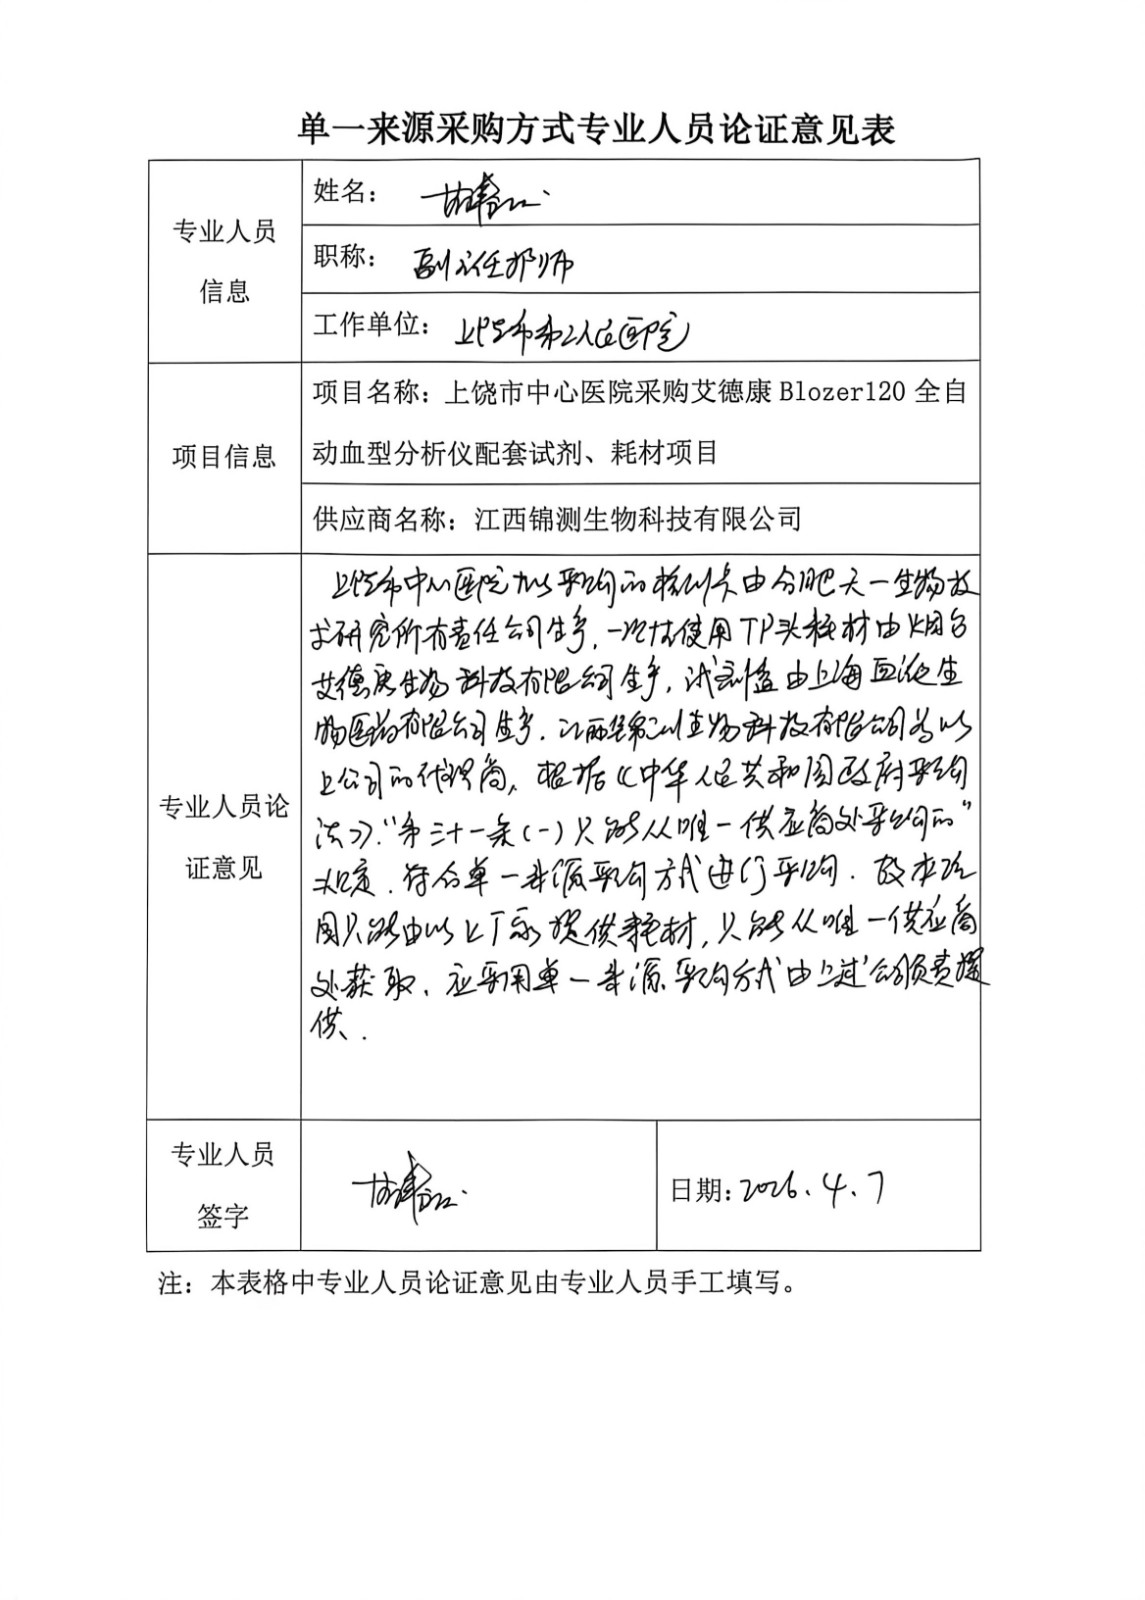 单一来源采购方式专业人员论证意见表
专业人员
信息
姓名：
职称： 副主任技师
工作单位： 上饶市第二人民医院
项目信息
项目名称：上饶市中心医院采购艾德康 Blozer120 全自
动血型分析仪配套试剂、耗材项目
供应商名称：江西锦测生物科技有限公司
专业人员论
证意见
上饶市中心医院 采购的检测卡由合肥天一生物技
术研究所有责任公司生产，一次性使用TP头耗材由烟台
艾德康生物科技有限公司生产，试剂盒由上海血液生
物医药有限公司生产．江西锦测生物科技有限公司为以
上公司的代理商，根据《中华人民共和国政府采购
法》：“第三十一条（一）只能从唯一供应商处采购的”
规定．符合单一来源采购方式进行采购．故本项
目只能由以上厂家提供耗材，只能从唯一供应商
处获取．应采用单一来源采购方式由上述公司负责提
供．
专业人员
签字
日期：2026.4.7
注：本表格中专业人员论证意见由专业人员手工填写。